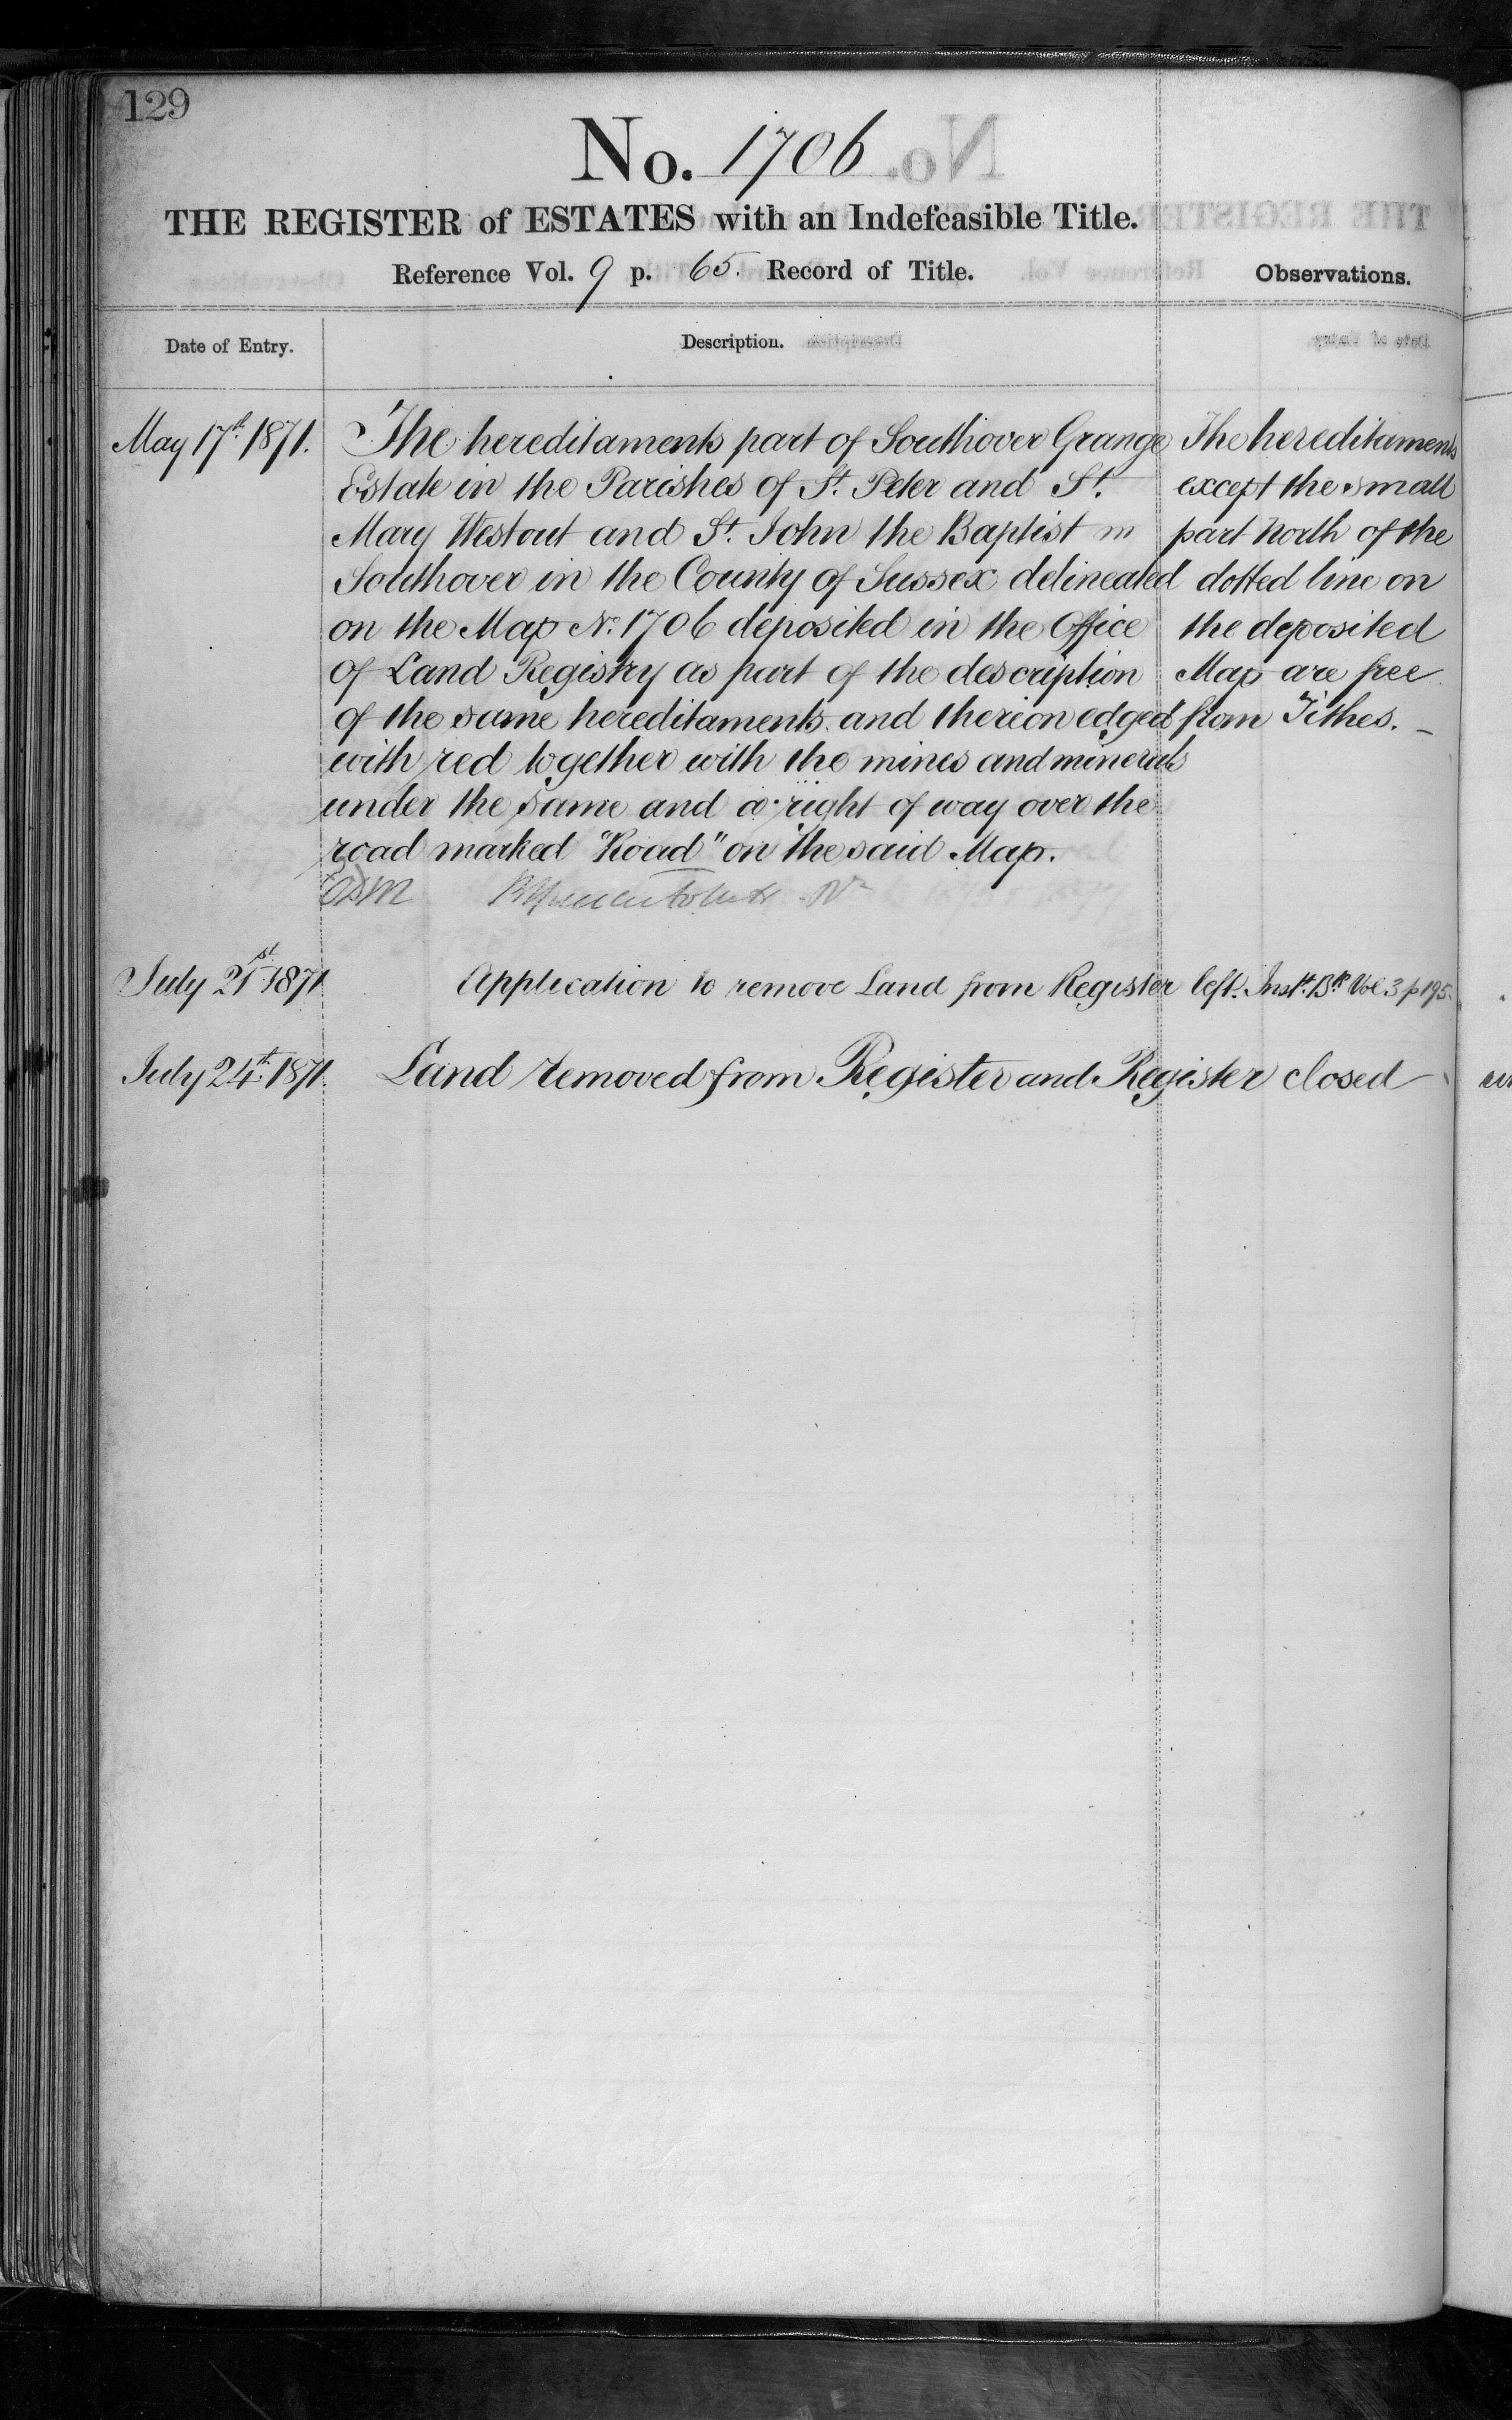 129
No. 1706
THE REGISTER of ESTATES with an Indefeasible Title.
Reference Vol. 9 p. 65. Record of Title.
Observations.
Date of Entry.
Description.
May 17th. 1871.
The hereditaments part of Southover Grange
Estate in the Parishes of St. Peter and St.
Mary Westout and St. John the Baptist in
Southover in the County of Sussex delineated
on the Map No. 1706 deposited in the Office
of Land Registry as part of the description
of the same hereditaments and thereon edged
with red together with the mines and minerals
under the same and a right of way over the
road marked "Road" on the said Map.
The hereditaments
except the small
part North of the
dotted line on
the deposited
Map are free
from Tithes. _
July 21st. 1871
Application to remove Land from Register left. Inst. Bk Vol 3 p 195.
July 24th. 1871.
Land removed from Register and Register closed